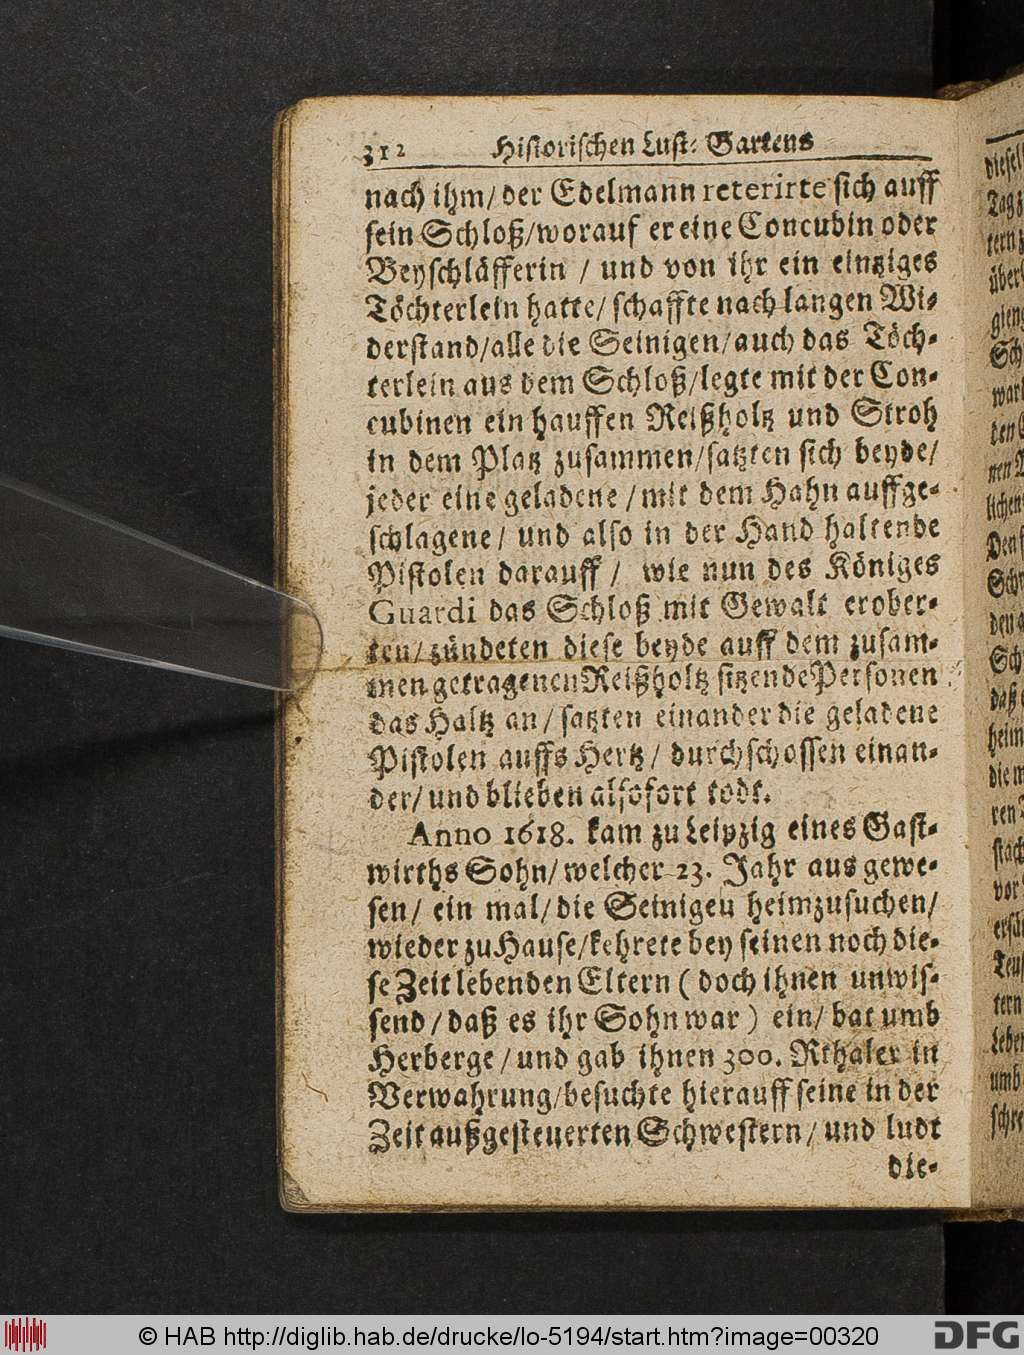 312 Historischen Lust-Gartens
nach ihm/ der Edelmann reterirte sich auff
sein Schloß/worauf er eine Concubin oder
Beyschläfferin / und von ihr ein eintziges
Töchterlein hatte/ schaffte nach langen Wi-
derstand/alle die Seinigen/auch das Töch-
terlein aus dem Schloß/legte mit der Con-
cubinen ein hauffen Reißholtz und Stroh
in dem Platz zusammen/satzten sich beyde/
jeder eine geladene /mit dem Hahn auffge-
schlagene/ und also in der Hand haltende
Pistolen darauff / wie nun des Königes
Guardi das Schloß mit Gewalt erober-
ten/zündeten diese beyde auff dem zusam-
men getragenen Reißholtz sitzende Personen
das Haltz an/ satzten einander die geladene
Pistolen auffs Hertz/ durchschossen einan-
der/ und blieben alsofort todt.
Anno 1618. kam zu Leipzig eines Gast-
wirths Sohn/welcher 23. Jahr aus gewe-
sen/ ein mal/die Seinigeu heimzusuchen/
wieder zu Hause/kehrete bey seinen noch die-
se Zeit lebenden Eltern ( doch ihnen unwis-
send/daß es ihr Sohn war ) ein/ bat umb
Herberge /und gab ihnen 300. Rthaler in
Verwahrung/besuchte hierauff seine in der
Zeit außgesteuerten Schwestern/ und ludt
die-
© HAB http://diglib.hab.de/drucke/lo-5194/start.htm?image=00320
DFG